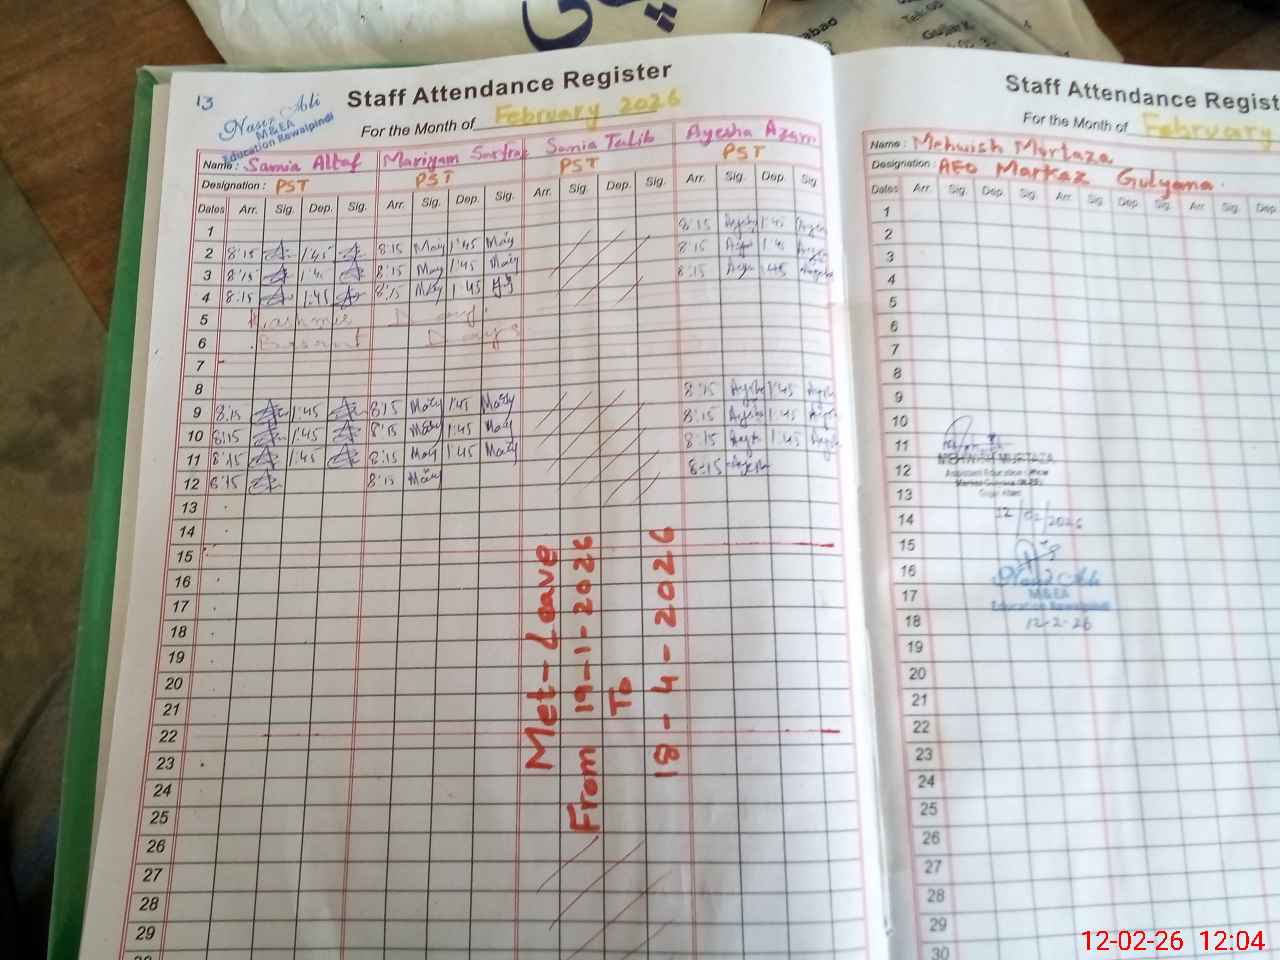 پانی
abad
Gujar K
13
Naser Ali
M&EA
Education Rawalpindi
Staff Attendance Register
For the Month of February 2026
Name : Samia Altaf Mariyam Sarfraz Samia Talib Ayesha Azam
Designation : PST PST PST PST
Dates Arr. Sig. Dep. Sig. Arr. Sig. Dep. Sig. Arr. Sig. Dep. Sig. Arr. Sig. Dep. Sig.
1
2 8:15 1:45 8:15 May 1:45 May 8:15 Ayesha 1:45
3 8:15 1:45 8:15 May 1:45 May 8:15 1:45
4 8:15 1:45 8:15 May 1:45 8:15 1:45
5 Kashmir Day
6 Basant Days
7
8
9 8:15 1:45 8:15 1:45 8:15 1:45
10 8:15 1:45 8:15 1:45 8:15 1:45
11 8:15 1:45 8:15 1:45 8:15 1:45
12 8:15 8:15 8:15
13
14
15
16
17
18
19
20
21
22
23
24
25
26
27
28
29
Met-Leave
From 19-1-2026
To
18-4-2026
Staff Attendance Regist
For the Month of February
Name : Mehwish Murtaza
Designation : AEO Markaz Gulyana
Dates Arr. Sig. Dep. Sig. Arr. Sig. Dep. Sig. Arr. Sig. Dep.
1
2
3
4
5
6
7
8
9
10
11
12
13
14
15
16
17
18
19
20
21
22
23
24
25
26
27
28
29
30
MEHWISH MURTAZA
Assistant Education Officer
12/02/2026
Naser Ali
M&EA
Education Rawalpindi
12-2-26
12-02-26 12:04